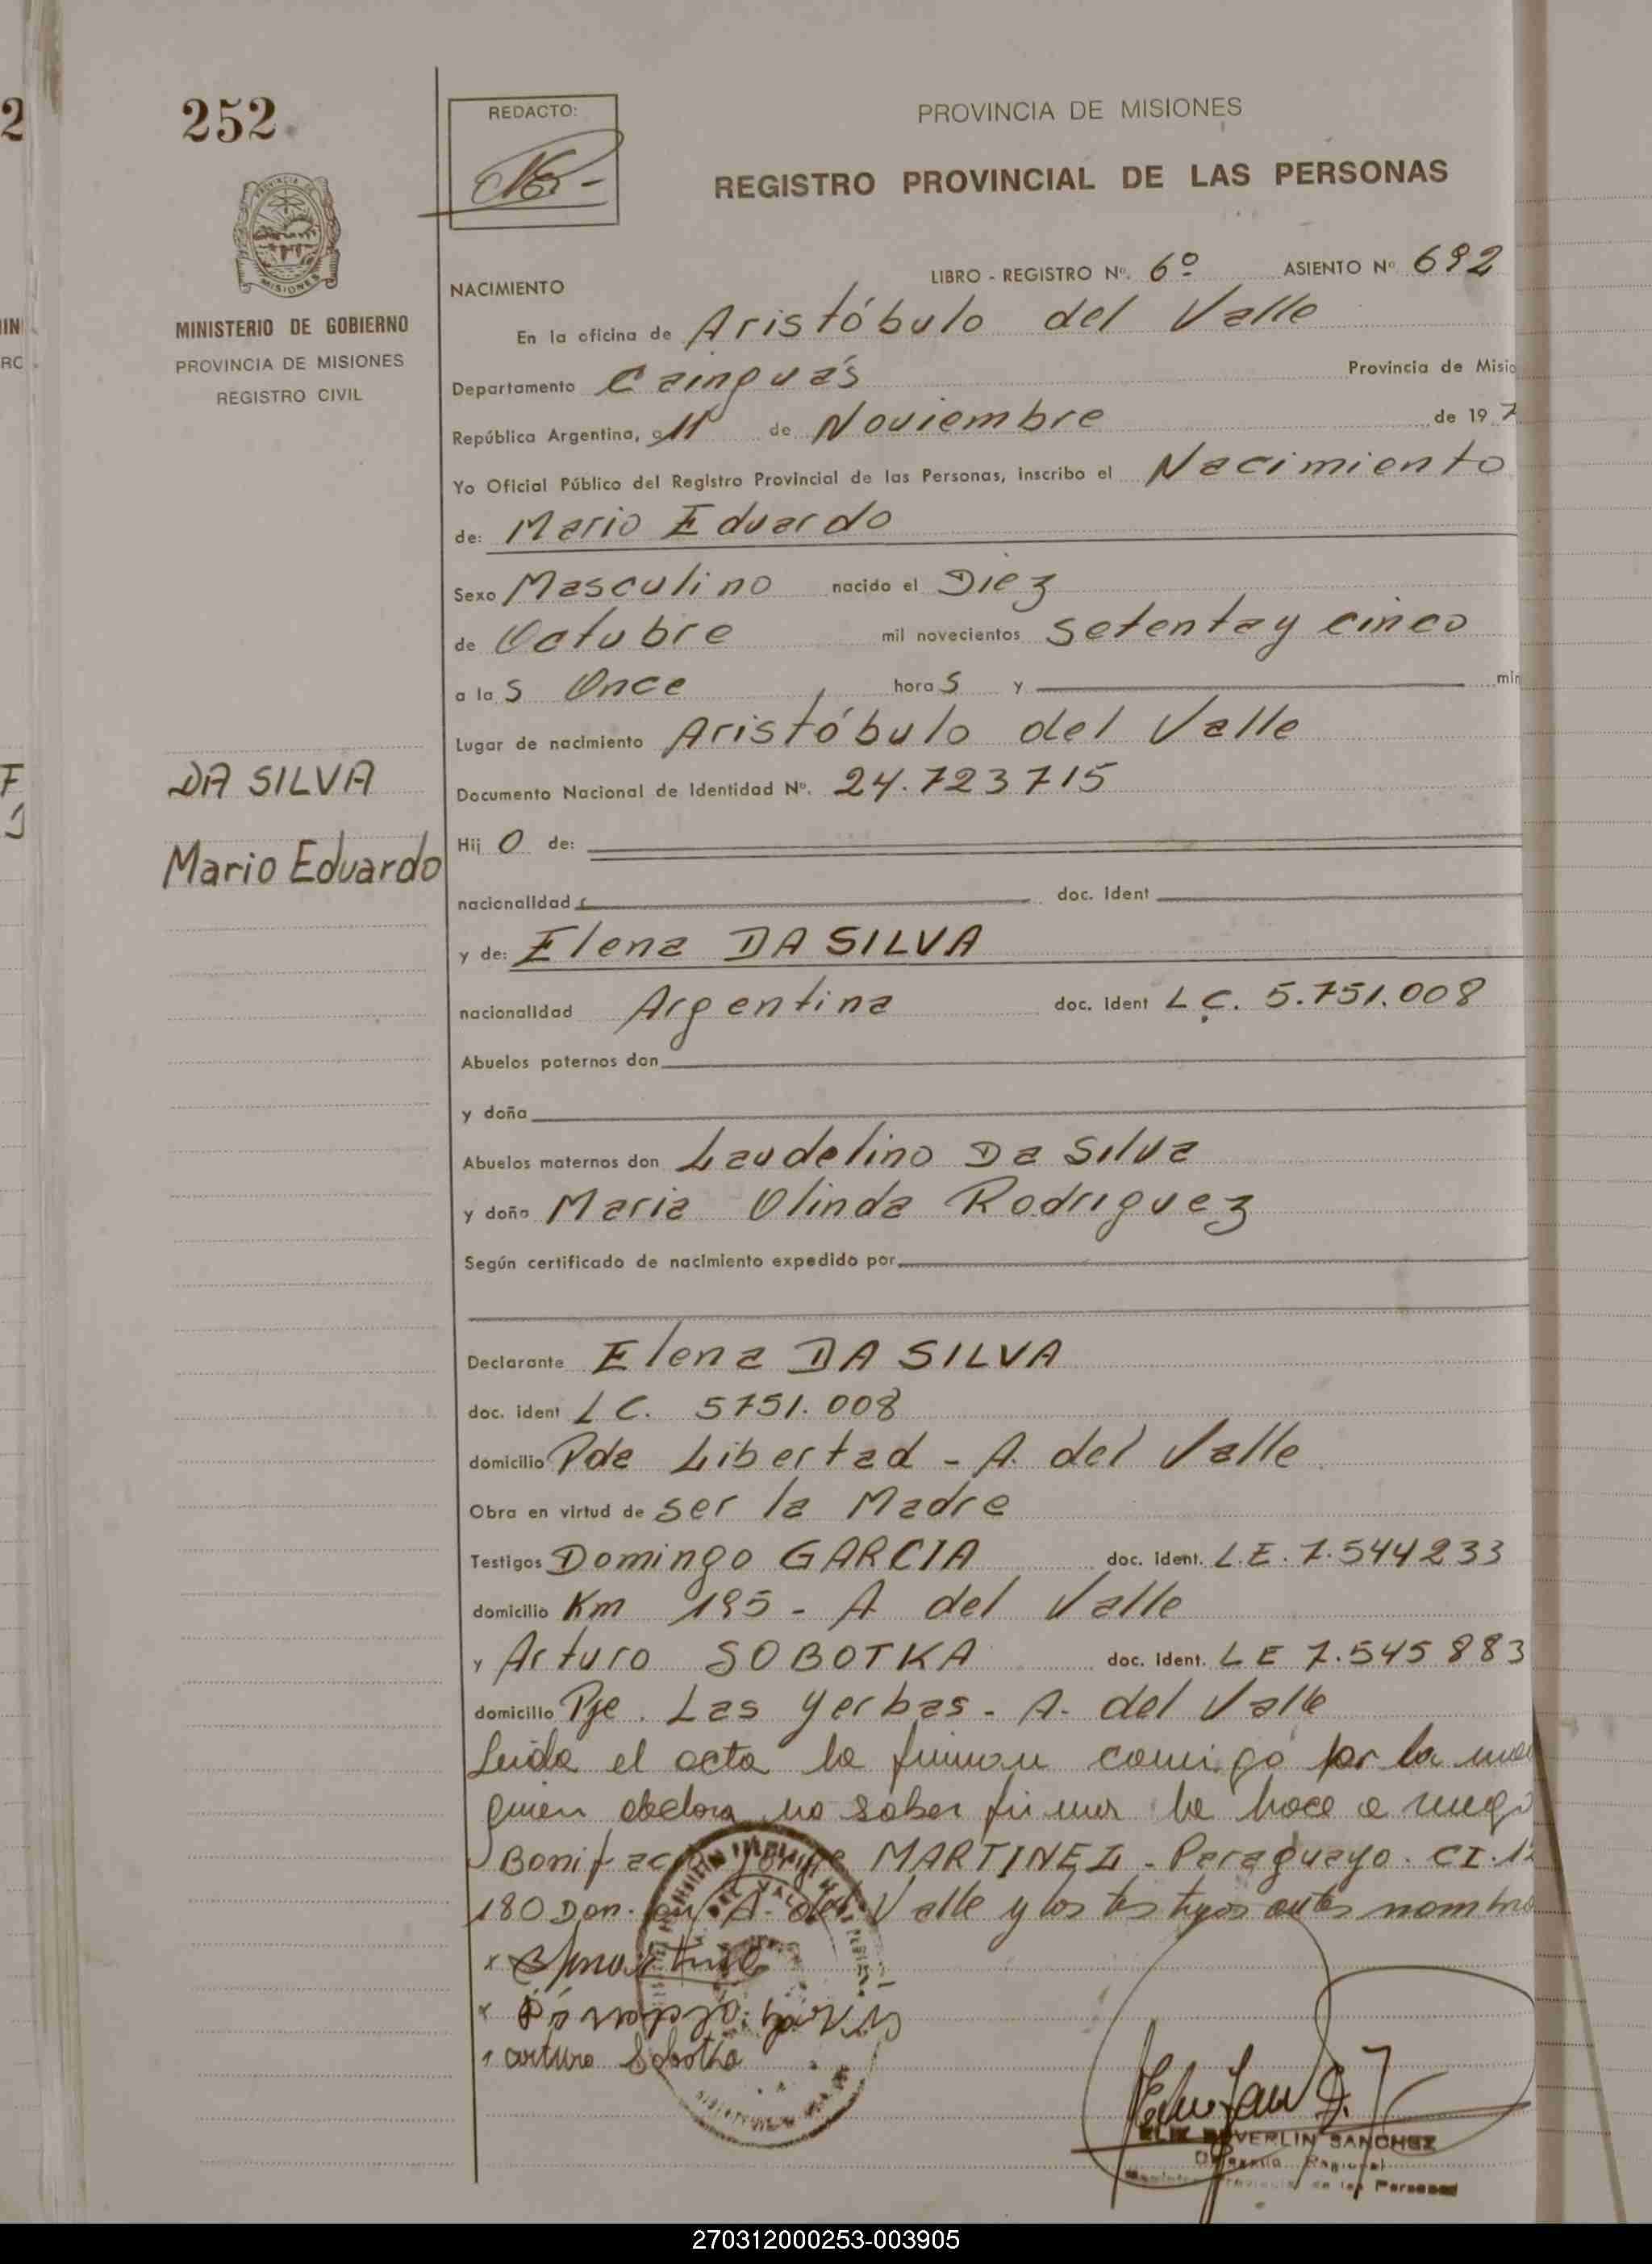 252
REDACTO:
PROVINCIA DE MISIONES
REGISTRO PROVINCIAL DE LAS PERSONAS
MISIONES
MINISTERIO DE GOBIERNO
PROVINCIA DE MISIONES
REGISTRO CIVIL
LIBRO - REGISTRO Nº. 6º ASIENTO Nº 692
NACIMIENTO
En la oficina de Aristóbulo del Valle
Departamento Cainguás Provincia de Misio
República Argentina, a 11 de Noviembre de 197
Yo Oficial Público del Registro Provincial de las Personas, inscribo el Nacimiento
de: Mario Eduardo
Sexo Masculino nacido el Diez
de Octubre mil novecientos setenta y cinco
a la s Once hora s y min
Lugar de nacimiento Aristóbulo del Valle
DA SILVA
Mario Eduardo
Documento Nacional de Identidad Nº. 24.723715
Hij o de:
nacionalidad doc. ident
y de: Elena DA SILVA
nacionalidad Argentina doc. ident L C. 5.751.008
Abuelos paternos don
y doña
Abuelos maternos don Laudelino Da Silva
y doña Maria Olinda Rodriguez
Según certificado de nacimiento expedido por
Declarante Elena DA SILVA
doc. ident L C. 5751.008
domicilio Pda Libertad - A. del Valle
Obra en virtud de ser la Madre
Testigos Domingo GARCIA doc. ident. L.E. 7.544233
domicilio Km 195 - A del Valle
y Arturo SOBOTKA doc. ident. L E 7.545883
domicilio Pje. Las Yerbas - A. del Valle
Leida el acta la firman conmigo por la
quien declara no saber firmar lo hace a ruego
Bonifacio MARTINEZ - Paraguayo. CI. 12
180 Dom. en A. del Valle y los testigos antes nombra
arturo Sobotka
VERLIN SANCHEZ
Regional
de las Personas
270312000253-003905